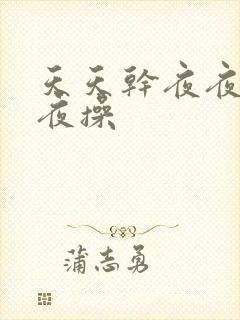 天天幹夜夜
夜操
蒲志勇